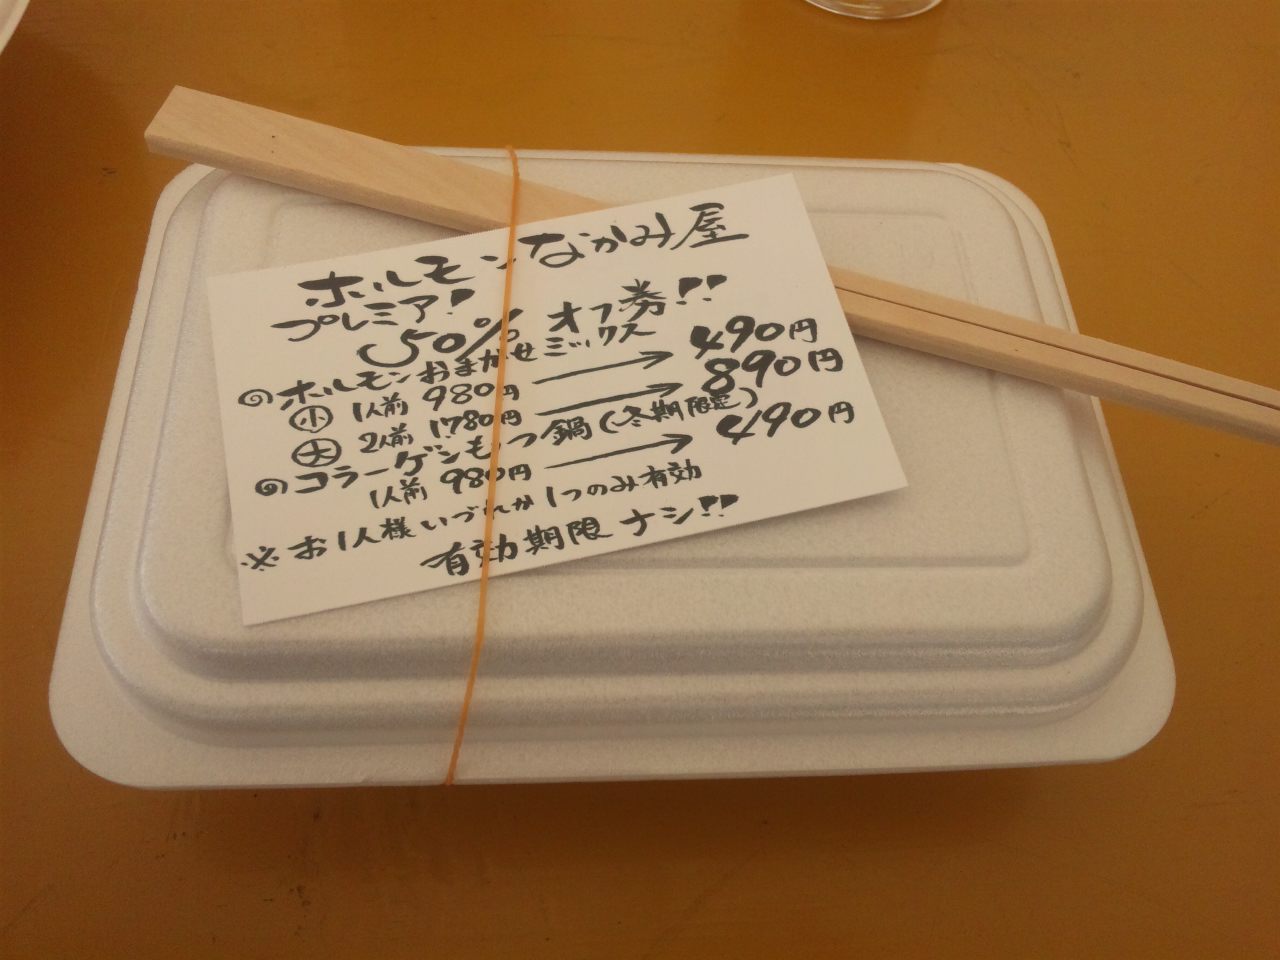 ホルモンなかみ屋
プレミア!
50% オフ券!!
◎ホルモンおまかせミックス
小 1人前 980円 → 490円
大 2人前 1780円 → 890円
◎コラーゲンもつ鍋(冬期限定)
1人前 980円 → 490円
※お1人様いづれか1つのみ有効
有効期限ナシ!!